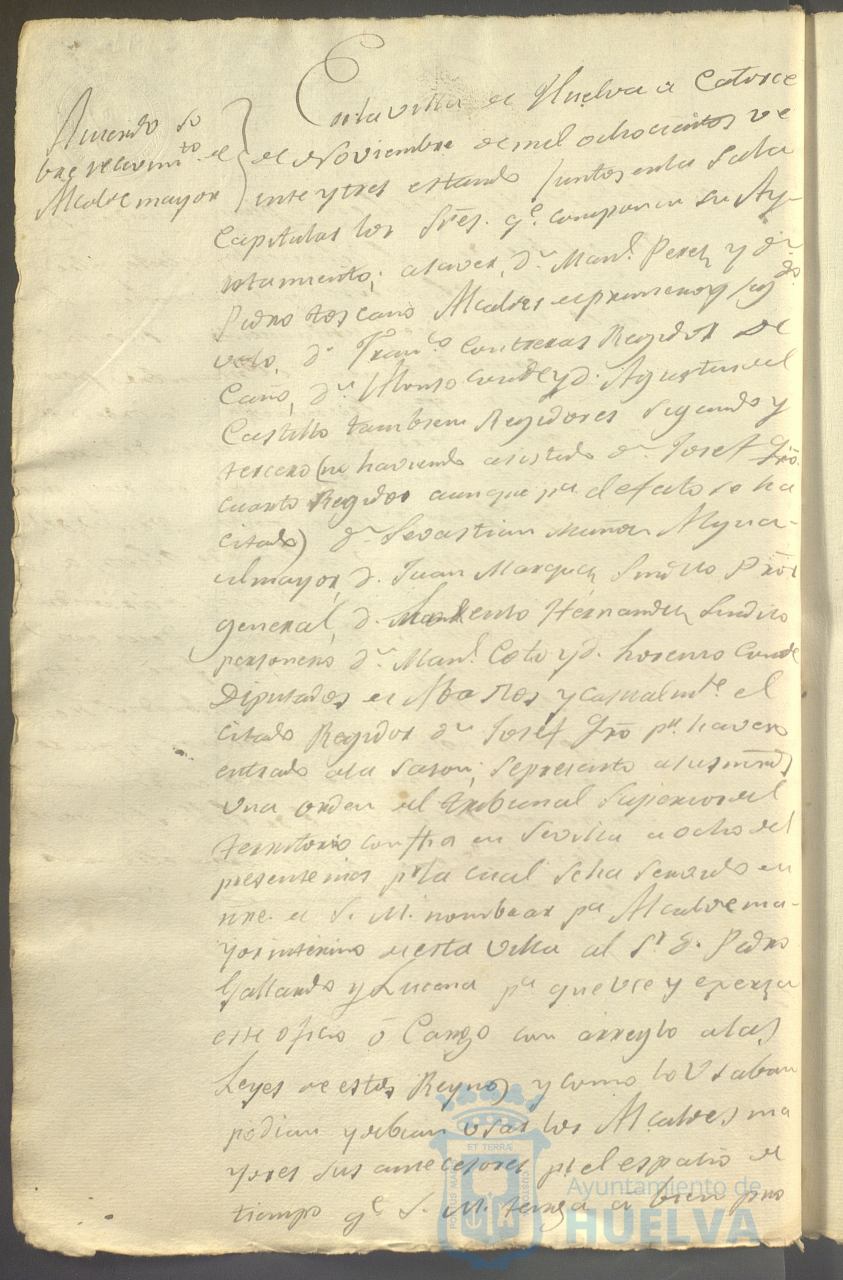 Acuerdo so
bre recivimto. de
Alcalde mayor
En la villa de Huelva a Catorce
de Noviembre de mil ochocientos ve
inte y tres estando juntos en la Sala
Capitular los Sres. qe. componen su Ay-
untamiento; a saver, Dn. Manl. Perez y Dn.
Pedro Toscano Alcaldes de primero y segdo.
voto, Dn. Franco. Contreras Regidor De
cano, Dn. Alonso Conde y D. Agustin del
Castillo tambien Regidores Segundo y
tercero (no haviendo asistido Dn. Josef
cuarto Regidor aunque pa. el efecto se ha
citado) Dn. Sevastian Munoz Algua-
cil mayor, D. Juan Marquez Sindico Pror.
general, D. Hernandez Sindico
personero Dn. Manl. Coto y D. Lorenzo Conde
Diputados de Abastos, y casualmte. el
citado Regidor Dn. Josef pr. haver
entrado a la sason; se presento a sus mrds
una orden del Tribunal Superior del
territorio con fha en Sevilla a ocho del
presente mes pr. la cual se ha servido en
nre. de S. M. nombrar pa. Alcalde ma-
yor interino de esta Villa al Sr. D. Pedro
Gallardo y Lucena pa. que use y exerza
este oficio ó Cargo con arreglo a las
Leyes de estos Reynos y como lo Usaban
podian y debian usar los Alcaldes ma
yores sus antecesores pr. el espacio de
tiempo qe. S. M. tenga a bien pues
PORTUS MARIS
ET TERRÆ
CUSTODIA
Ayuntamiento de
HUELVA